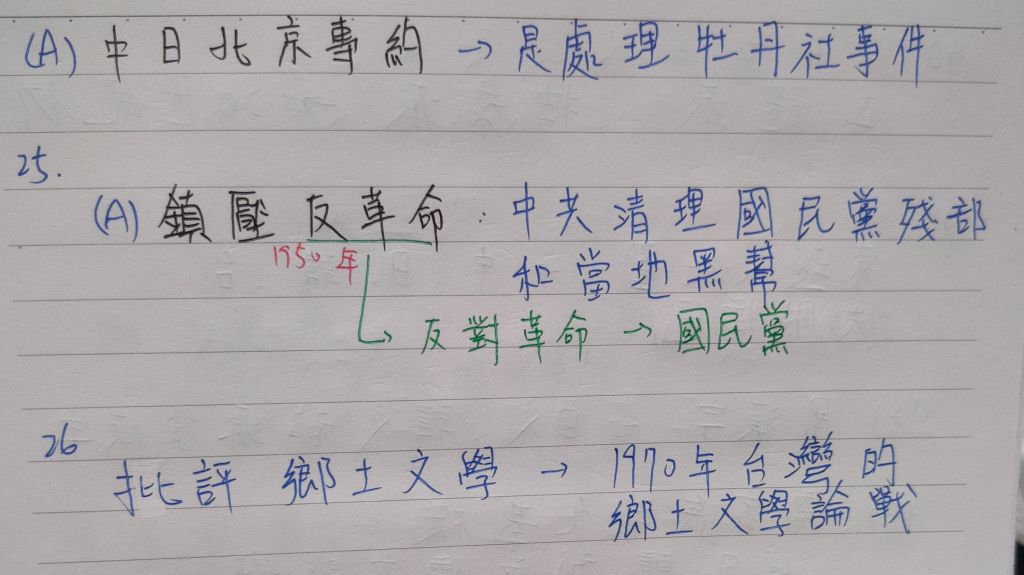 (A) 中日北京專約 → 是處理牡丹社事件
25.
(A) 鎮壓反革命: 中共清理國民黨殘部
1950年 和當地黑幫
反對革命 → 國民黨
26
批評鄉土文學 → 1970年台灣的
鄉土文學論戰